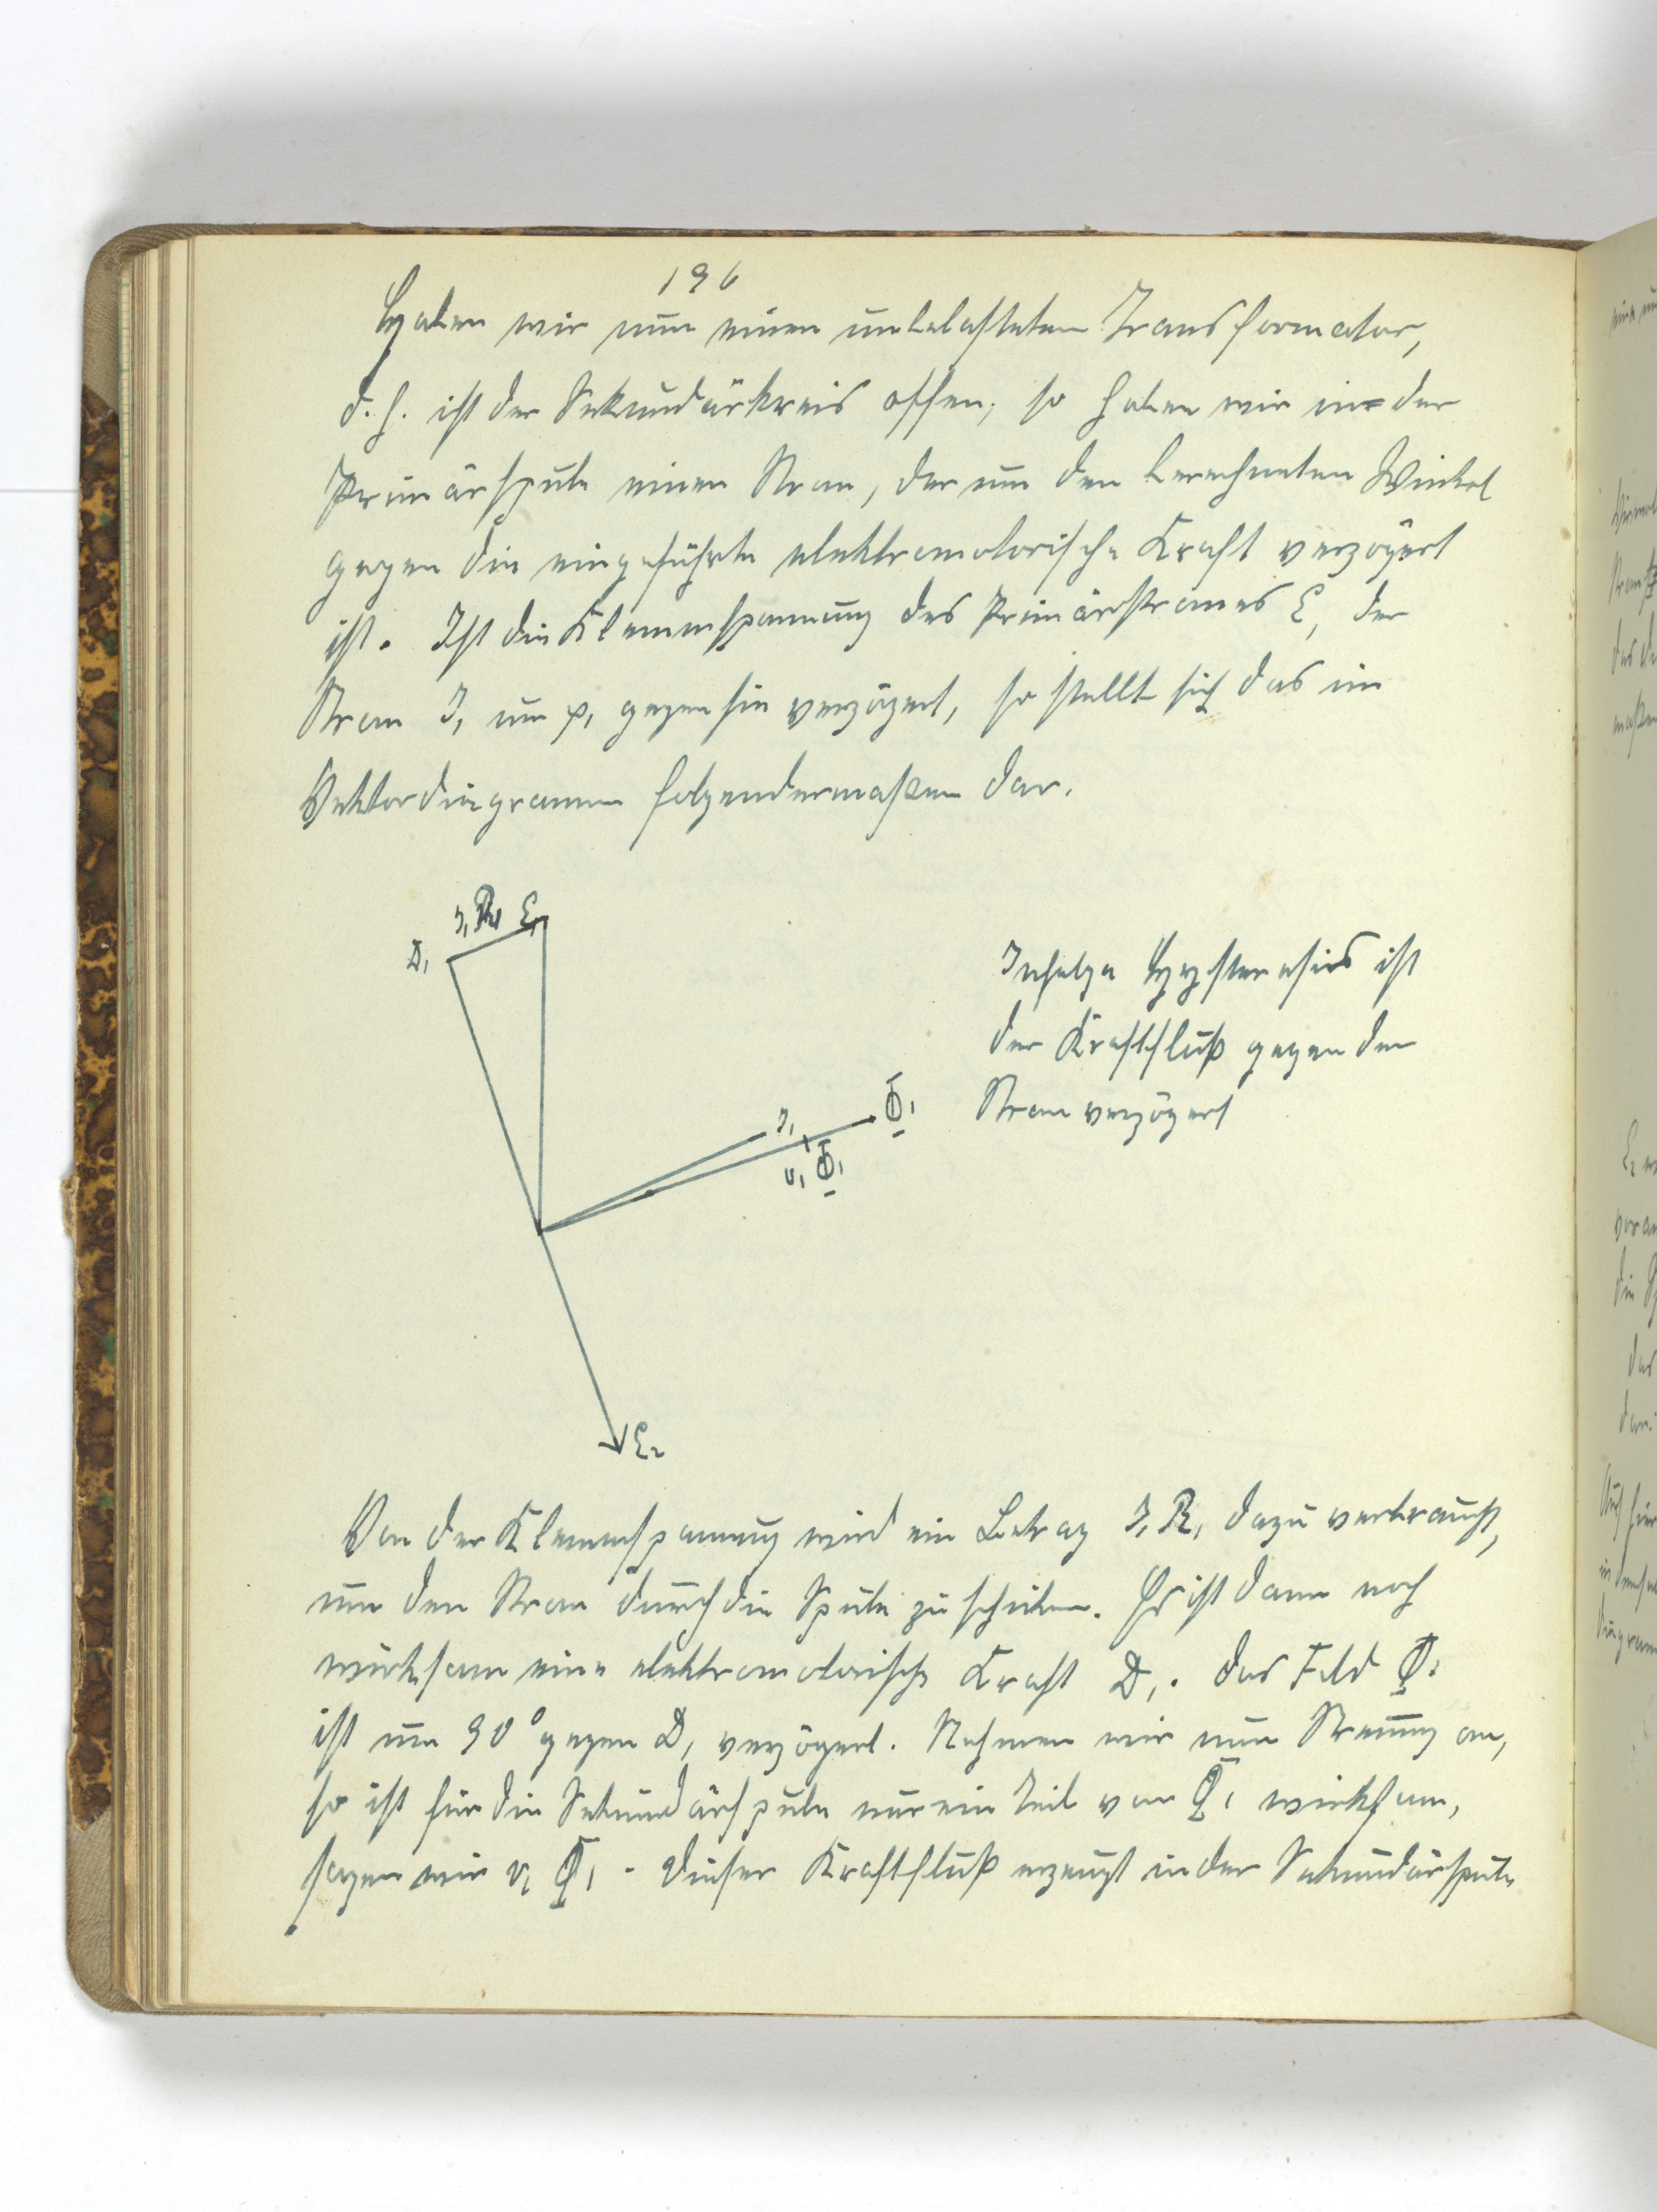 196
Haben wir nun einen unbelasteten Transformator,
d. h. ist der Sekundärkreis offen, so haben wir in der
Primärspule einen Strom, der um den berechneten Winkel
gegen die eingeführte elektromotorische Kraft verzögert
ist. Ist die Klemmspannung des Primärstromes E₁ der
Strom J₁ um φ₁ gegen sie verzögert, so stellt sich das im
Vektordiagramm folgendermaßen dar.
J₁R₁ E₁
D₁
Infolge Hysteresis ist
der Kraftfluß gegen den
Strom verzögert
J₁ Φ₁
v₁ Φ₁
E₂
Von der Klemmspannung wird ein Betrag J₁R₁ dazu verbraucht,
um den Strom durch die Spule zu schicken. Es ist dann noch
wirksam eine elektromotorische Kraft D₁. Das Feld Φ₁
ist um 90° gegen D₁ verzögert. Nehmen wir nun Streuung an,
so ist für die Sekundärspule nur ein Teil von Φ₁ wirksam,
sagen wir v₁ Φ₁. Dieser Kraftfluß erzeugt in der Sekundärspule